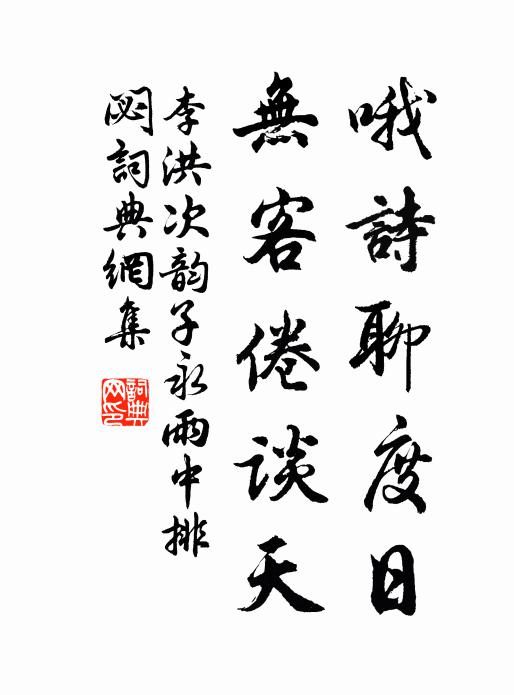 哦詩聊度日
無客倦談天
李洪次韵子永雨中排
悶詞典網集
詞典
网印